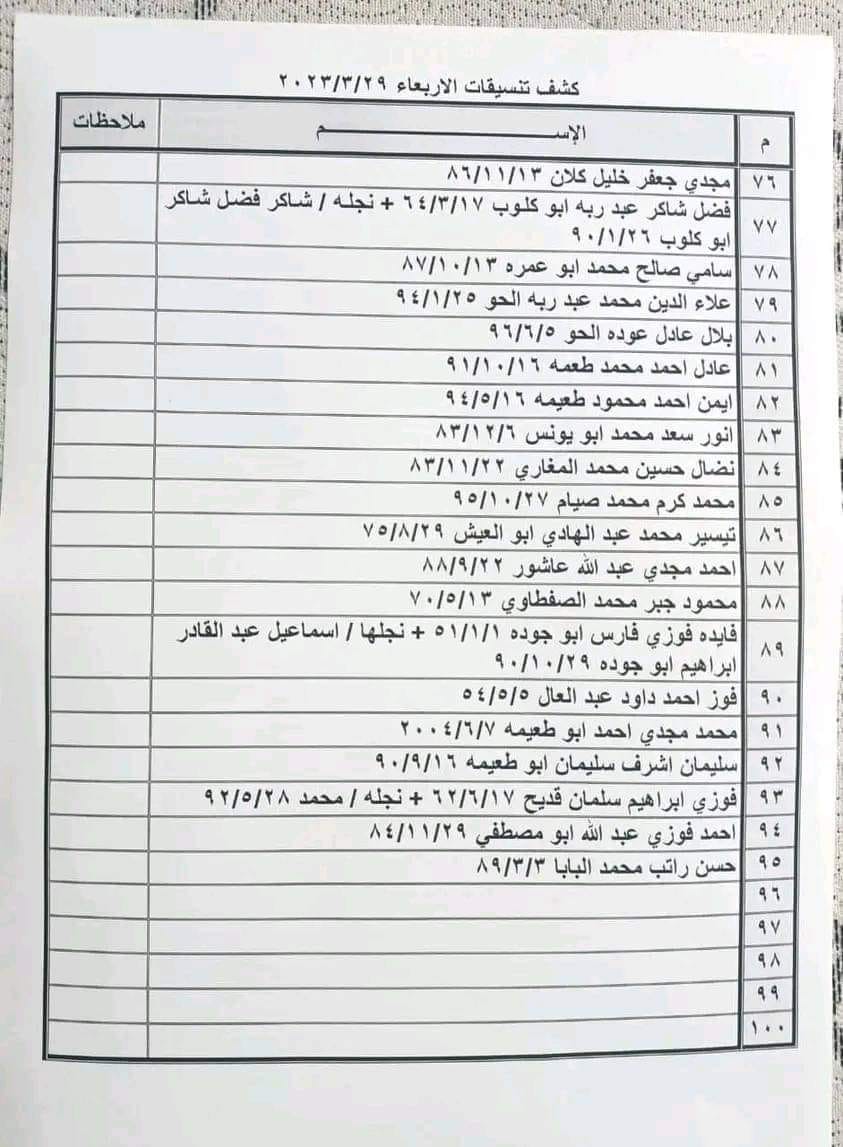 كشف تنسيقات الاربعاء ٢٠٢٣/٣/٢٩
م الإســـــــم ملاحظات
٧٦ مجدي جعفر خليل كلان ٨٦/١١/١٣
٧٧ فضل شاكر عبد ربه ابو كلوب ٦٤/٣/١٧ + نجله / شاكر فضل شاكر
ابو كلوب ٩٠/١/٢٦
٧٨ سامي صالح محمد ابو عمره ٨٧/١٠/١٣
٧٩ علاء الدين محمد عبد ربه الحو ٩٤/١/٢٥
٨٠ بلال عادل عوده الحو ٩٦/٦/٥
٨١ عادل احمد محمد طعمه ٩١/١٠/١٦
٨٢ ايمن احمد محمود طعيمه ٩٤/٥/١٦
٨٣ انور سعد محمد ابو يونس ٨٣/١٢/٦
٨٤ نضال حسين محمد المغاري ٨٣/١١/٢٢
٨٥ محمد كرم محمد صيام ٩٥/١٠/٢٧
٨٦ تيسير محمد عبد الهادي ابو العيش ٧٥/٨/٢٩
٨٧ احمد مجدي عبد الله عاشور ٨٨/٩/٢٢
٨٨ محمود جبر محمد الصفطاوي ٧٠/٥/١٣
٨٩ فايده فوزي فارس ابو جوده ٥١/١/١ + نجلها / اسماعيل عبد القادر
ابراهيم ابو جوده ٩٠/١٠/٢٩
٩٠ فوز احمد داود عبد العال ٥٤/٥/٥
٩١ محمد مجدي احمد ابو طعيمه ٢٠٠٤/٦/٧
٩٢ سليمان اشرف سليمان ابو طعيمه ٩٠/٩/١٦
٩٣ فوزي ابراهيم سلمان قديح ٦٢/٦/١٧ + نجله / محمد ٩٢/٥/٢٨
٩٤ احمد فوزي عبد الله ابو مصطفي ٨٤/١١/٢٩
٩٥ حسن راتب محمد البابا ٨٩/٣/٣
٩٦
٩٧
٩٨
٩٩
١٠٠